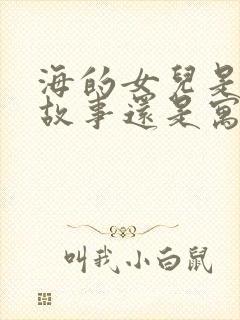 海的女兒是
故事還是寓
叫我小白鼠